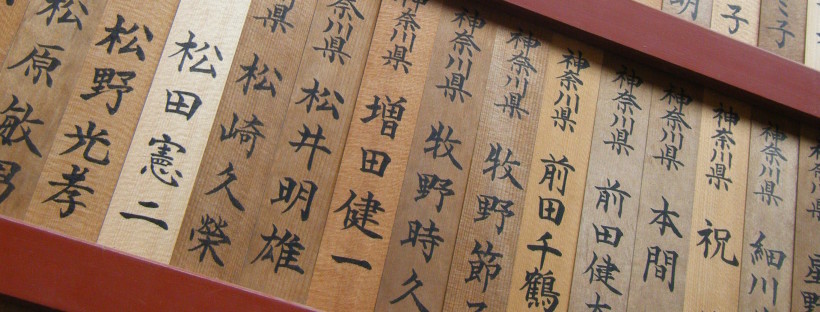 ミ子
子
明
奈川県 星野
神奈川県 細川
神奈川県 祝
神奈川県 本間
神奈川県 前田健
神奈川県 前田千鶴
神奈川県 牧野節
神奈川県 牧野時久
神奈川県 増田健一
奈川県 松井明雄
県 松崎久榮
松田憲二
松野光孝
松原敏男